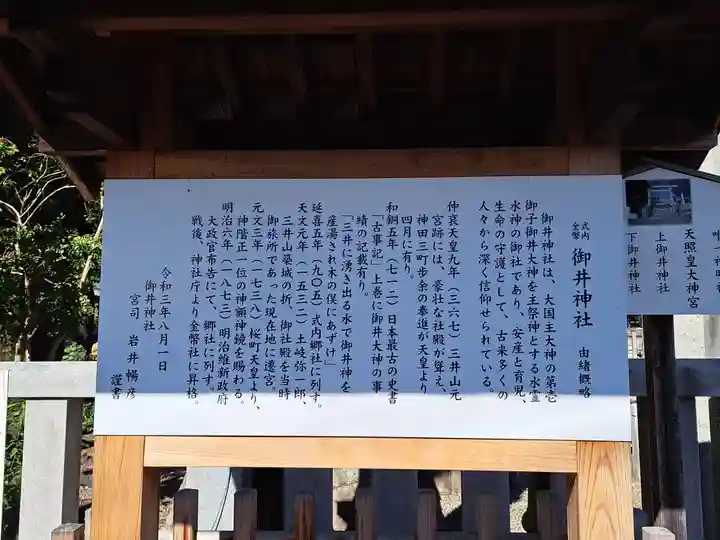 式内
金幣
御井神社
由緒概略
御井神社は、大国主大神の第壱
御子御井大神を主祭神とする水霊
水神の御社であり、安産と育児、
生命の守護として、古来多くの
人々から深く信仰せられている。
仲哀天皇九年（三六七）三井山元
宮跡には、豪壮な社殿が聳え、
神田三町歩余の奉進が天皇より
四月に有り。
和銅五年（七一二）日本最古の史書
「古事記」上巻に御井大神の事
績の記載有り。
「三井に湧き出る水で御井神を
産湯され木の俣にあずけ」
延喜五年（九〇五）式内郷社に列す。
天文元年（一五三二）土岐弥一郎、
三井山築城の折、御社殿を当時
御旅所であった現在地に遷宮。
元文三年（一七三八）桜町天皇より、
神階正一位の神額神鏡を賜わる。
明治六年（一八七三）明治維新政府
大政官布告にて、郷社に列す。
戦後、神社庁より金幣社に昇格。
令和三年八月一日
御井神社
宮司　岩井暢彦
謹書
天照皇大神宮
上御井神社
下御井神社